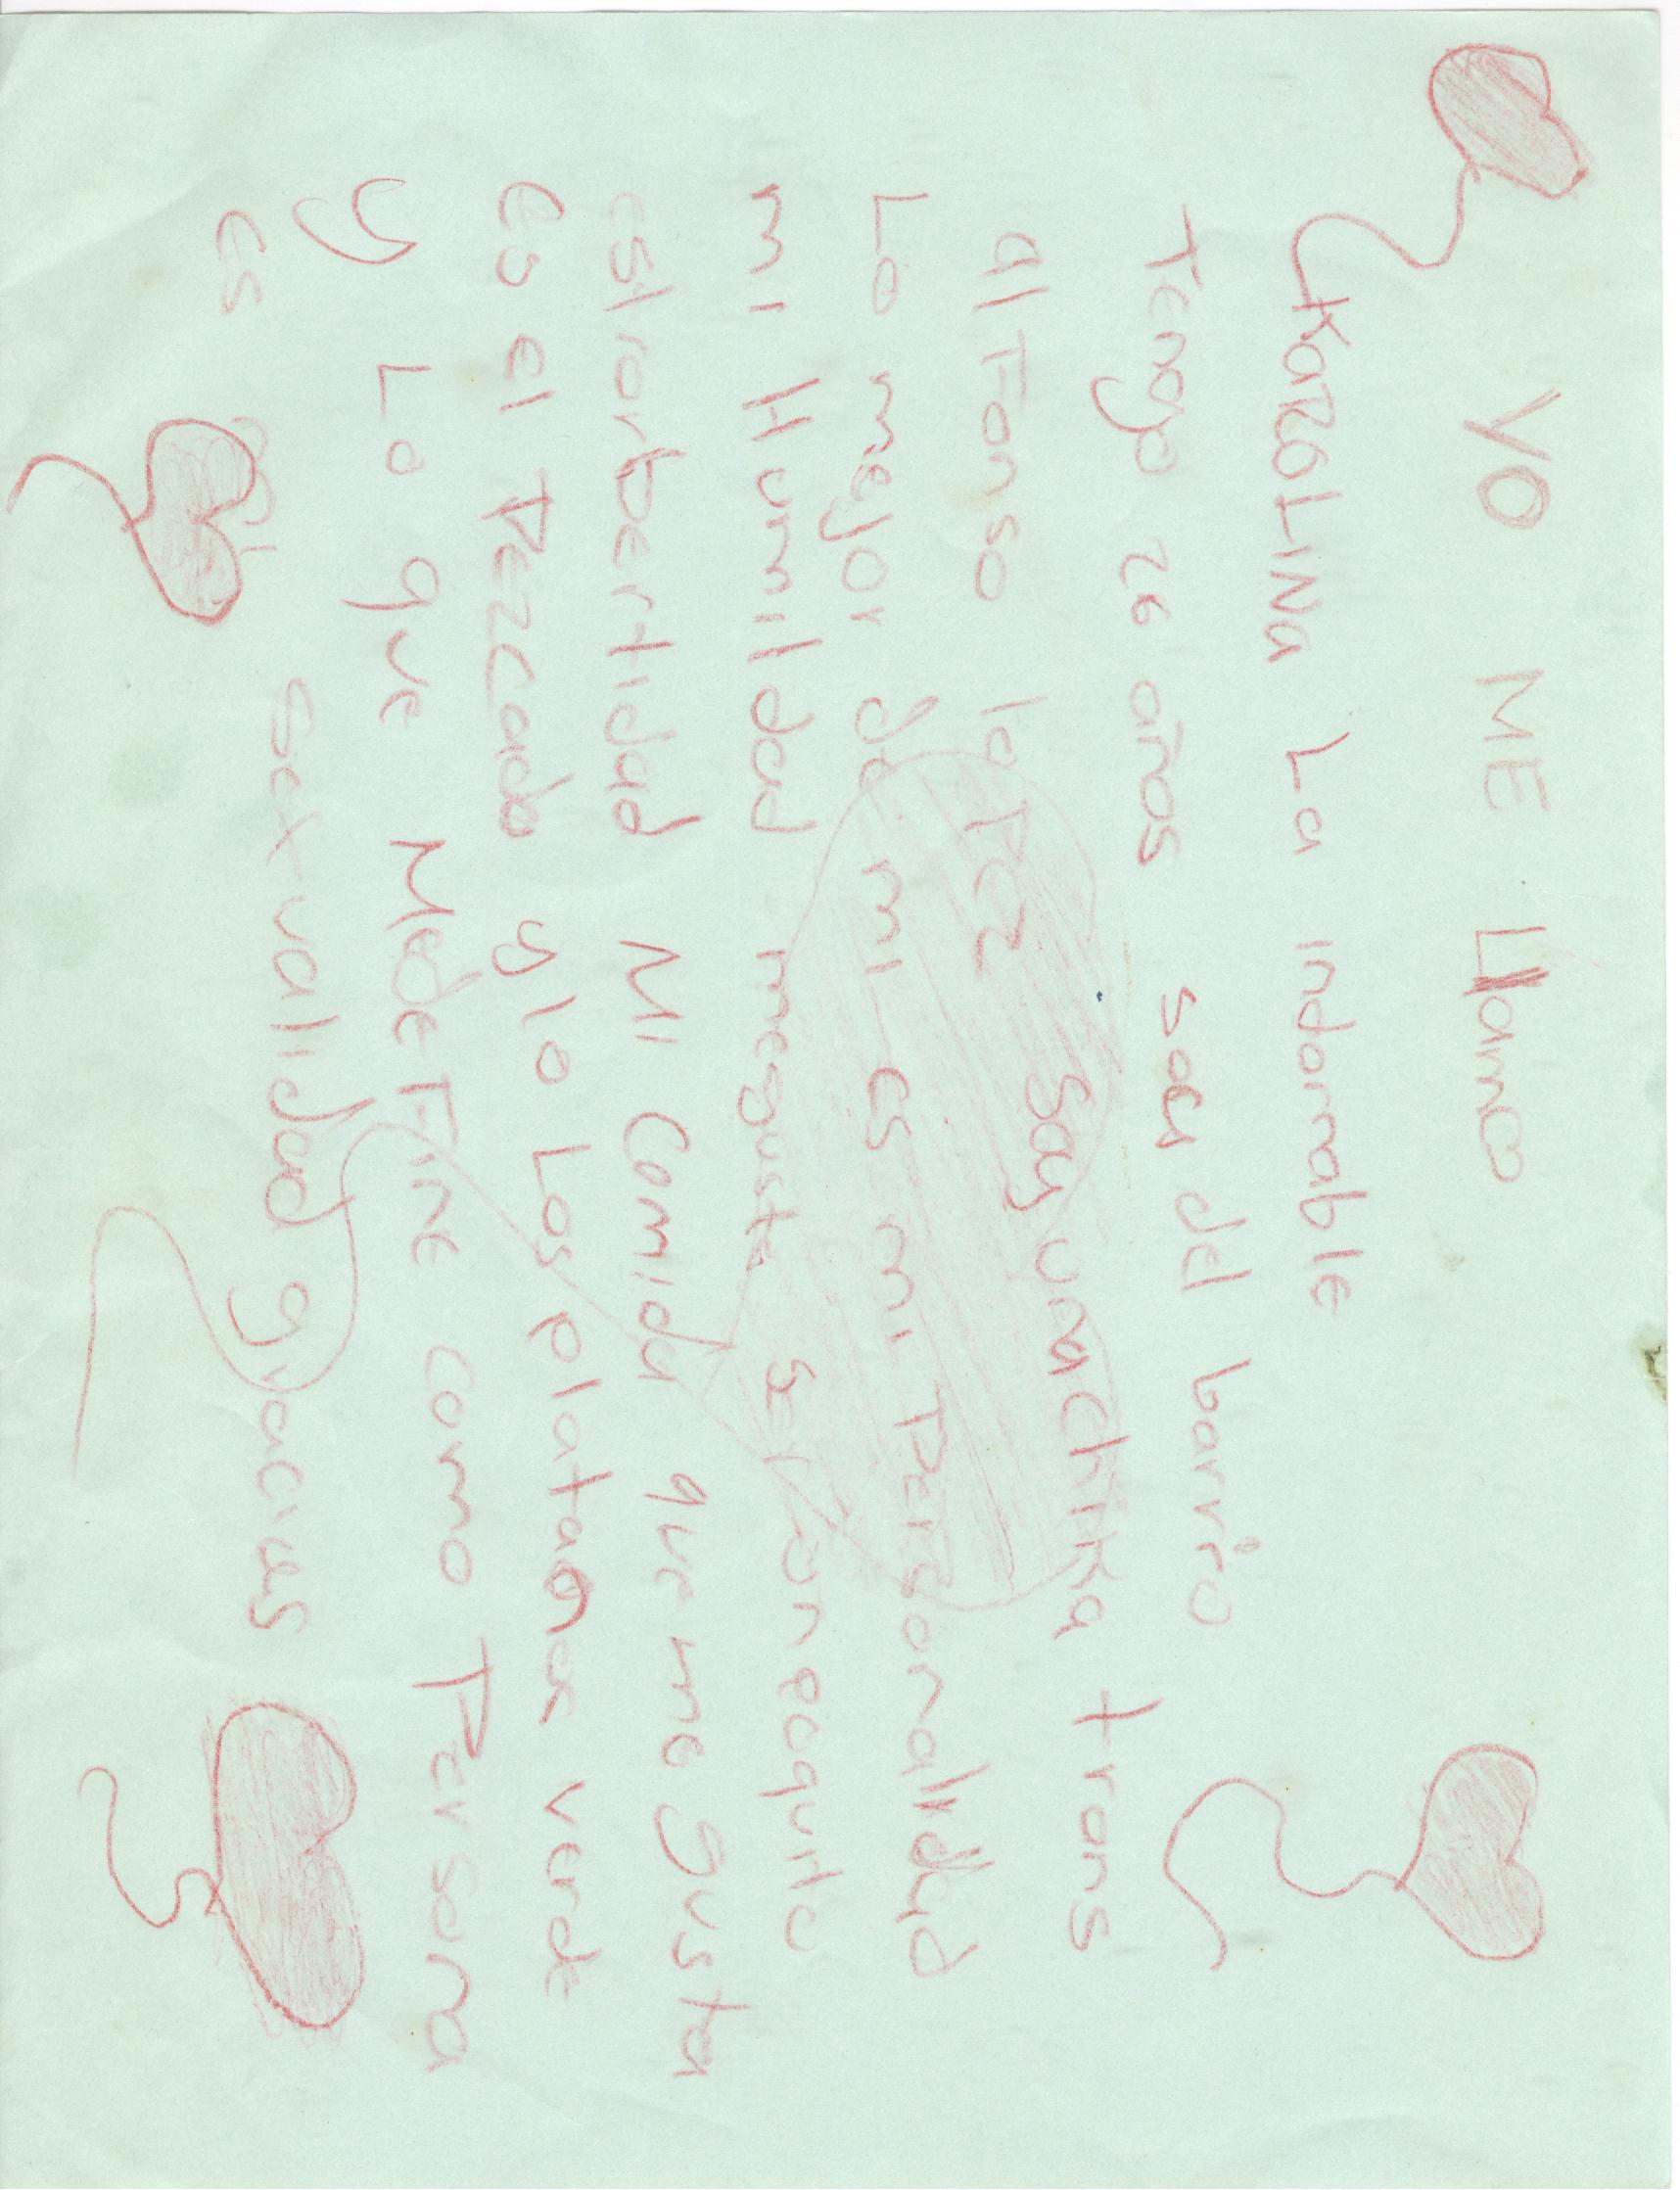 YO ME Llamo
KaROLINa La indomable
Tengo 26 años soy del barrio
alfonso lopez soy una chika trans
Lo mejor de mi es mi Personalidad
mi Humildad me gusta ser un poquito
estrorbertidad Mi Comida que me gusta
es el Pezcado y lo Los platanos verde
y Lo que Mede Fine como Persona
es sexualidad gracias